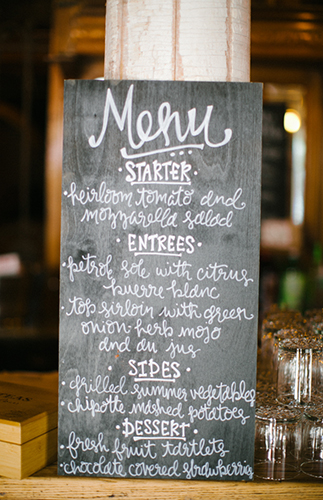 Menu
STARTER
• heirloom tomato and
mozzarella salad
• ENTREES •
• petrol sole with citrus
buerre blanc
• top sirloin with green
onion herb mojo
and au jus
• SIDES •
• grilled summer vegetables
• chipotle mashed potatoes
• DESSERT •
• fresh fruit tartlets
• chocolate covered strawberries